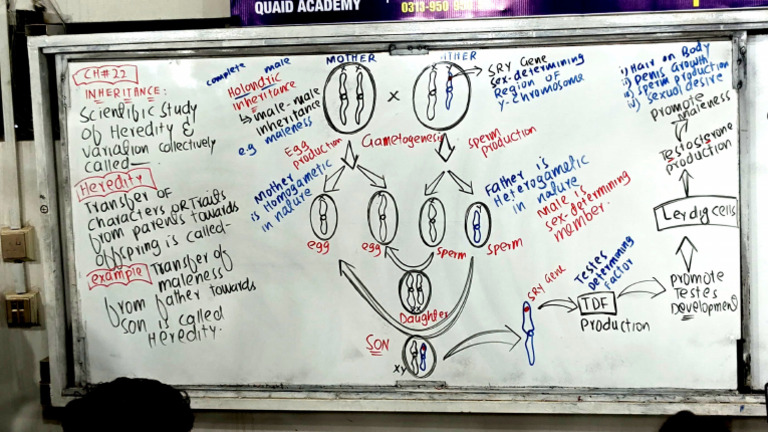 QUAID ACADEMY
0313-950 950
CH#22
INHERITANCE:
Scientific Study
of Heredity &
variation collectively
called—
Heredity
Transfer of
characters or Traits
from parents towards
offspring is called-
example Transfer of
maleness
from father towards
son is called
Heredity.
complete male
Holandric
inheritance
↳ male-male
inheritance
e.g maleness
MOTHER
×
SRY Gene
sex-determining
Region of
y-chromosome
Gametogenesis
Egg
production
sperm
production
Mother
is Homogametic
in nature
Father is
Heterogametic
in nature
male is
sex-determining
member.
egg
egg
sperm
sperm
Daughter
SON
XY
SRY Gene
Testes
Determining
factor
TDF
Production
promote
Testes
Development
Leydig cells
Testosterone
production
Promote
maleness
i) Hair on Body
ii) Penis Growth
iii) Sperm production
iv) sexual desire